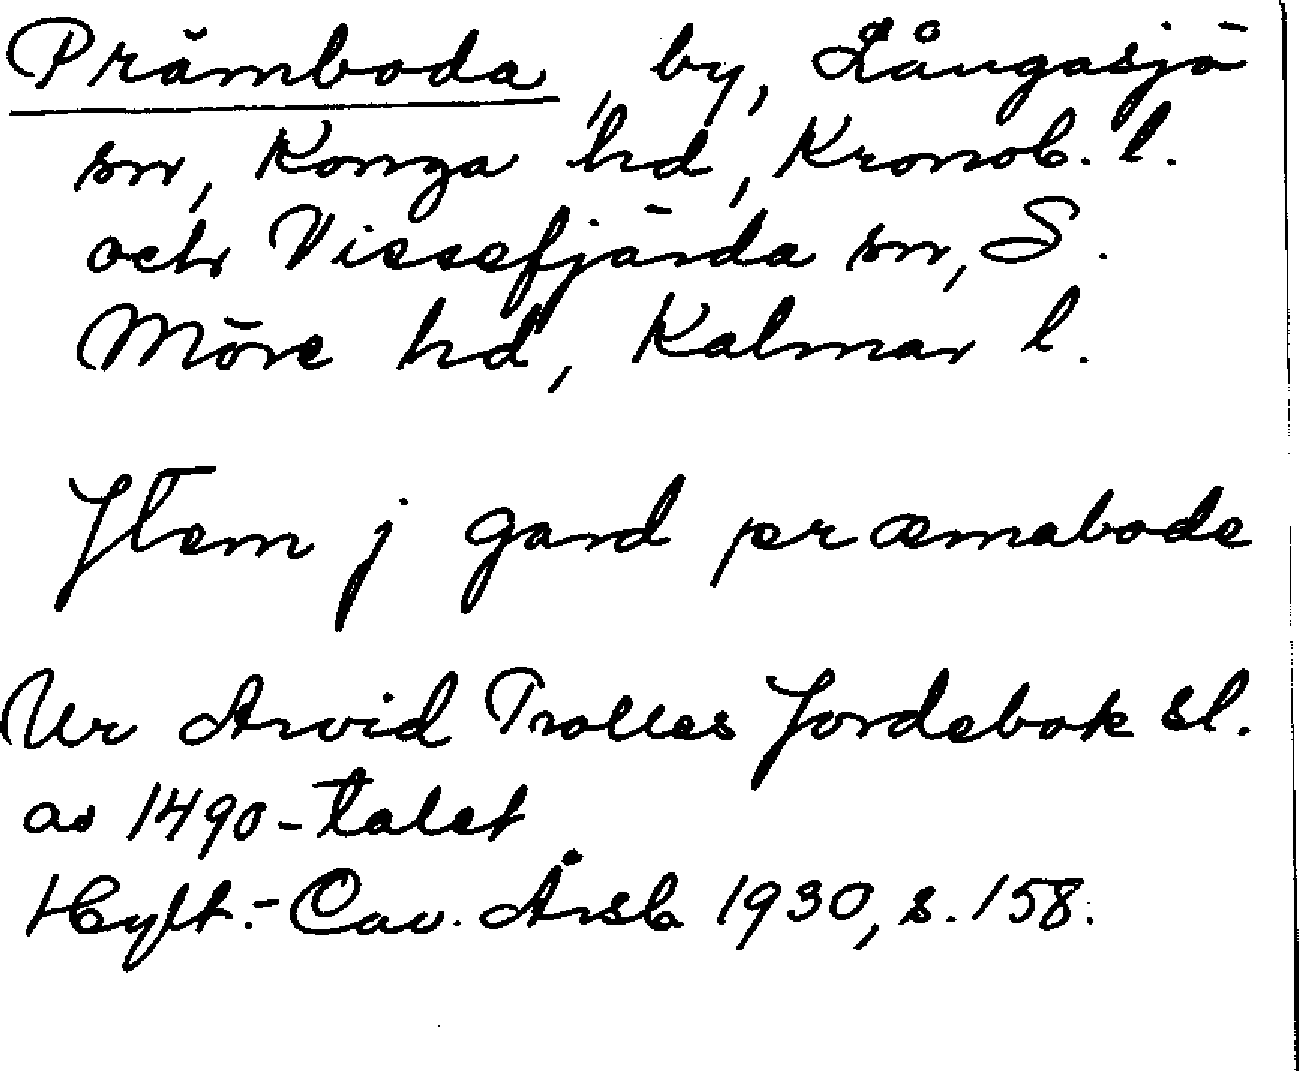 Prämboda, by, Långasjö
sn, Konga hd, Kronob. l.
och Vissefjärda sn, S.
Möre hd, Kalmar l.
Jtem j gard præmabode
Ur Arvid Trolles Jordebok sl.
av 1490-talet
Hylt.-Cav. Årsb 1930, s. 158.